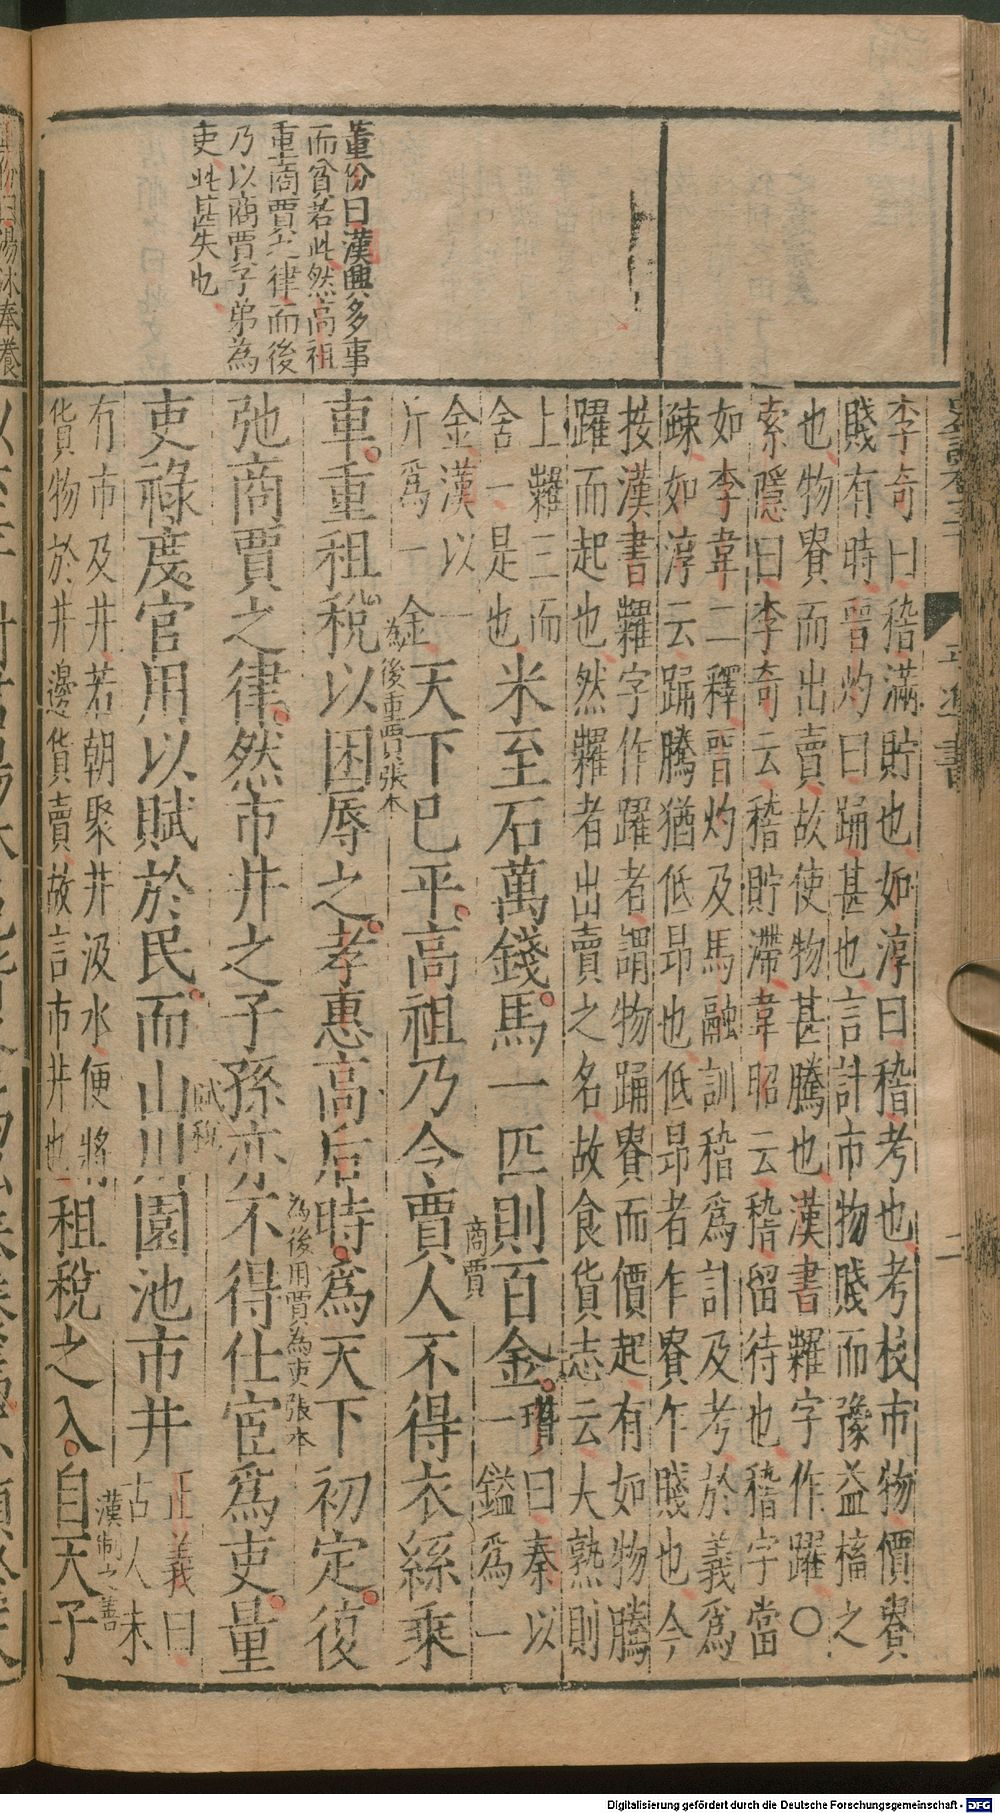 董份曰漢興多事
而貧若此然高祖
重商賈之律而後
乃以商賈子弟為
吏此甚失也
史記卷三十
平準書
二
李奇曰稽滿貯也如淳曰稽考也考校市物價貴
賤有時晉灼曰踊甚也言計市物賤而豫益稸之
也物貴而出賣故使物甚騰也漢書糶字作躍○
索隱曰李奇云稽貯滯韋昭云稽留待也稽字當
如李韋二釋晉灼及馬融訓稽爲計及考於義爲
疎如淳云踊騰猶低昂也低昂者乍貴乍賤也今
按漢書糶字作躍者謂物踊貴而價起有如物騰
躍而起也然糶者出賣之名故食貨志云大熟則
上糶三而
舍一是也
米至石萬錢馬一匹則百金
瓚曰秦以
一鎰爲一
商賈
金漢以一
斤爲一金
天下已平高祖乃令賈人不得衣絲乘
為後重賈張本
車重租稅以困辱之孝惠高后時爲天下初定復
為後用賈為吏張本
弛商賈之律然市井之子孫亦不得仕宦爲吏量
賦稅
吏祿度官用以賦於民而山川園池市井
正義曰
古人未
漢制之善
有市及井若朝聚井汲水便將
貨物於井邊貨賣故言市井也
租稅之入自天子
Digitalisierung gefördert durch die Deutsche Forschungsgemeinschaft - DFG